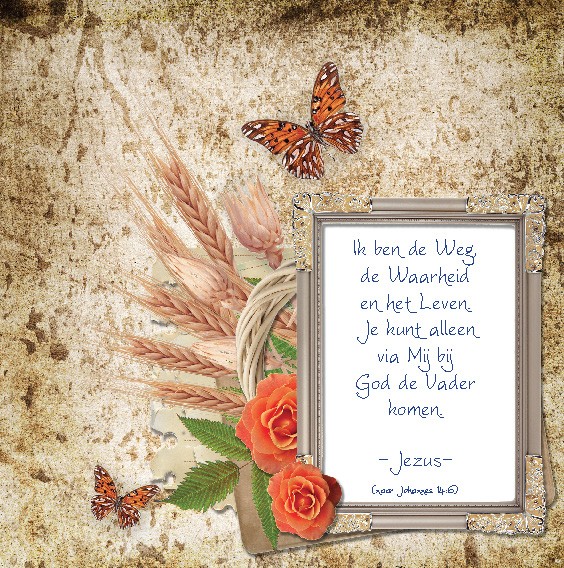 Ik ben de Weg,
de Waarheid
en het Leven.
Je kunt alleen
via Mij bij
God de Vader
komen.
-Jezus-
(naar Johannes 14:6)